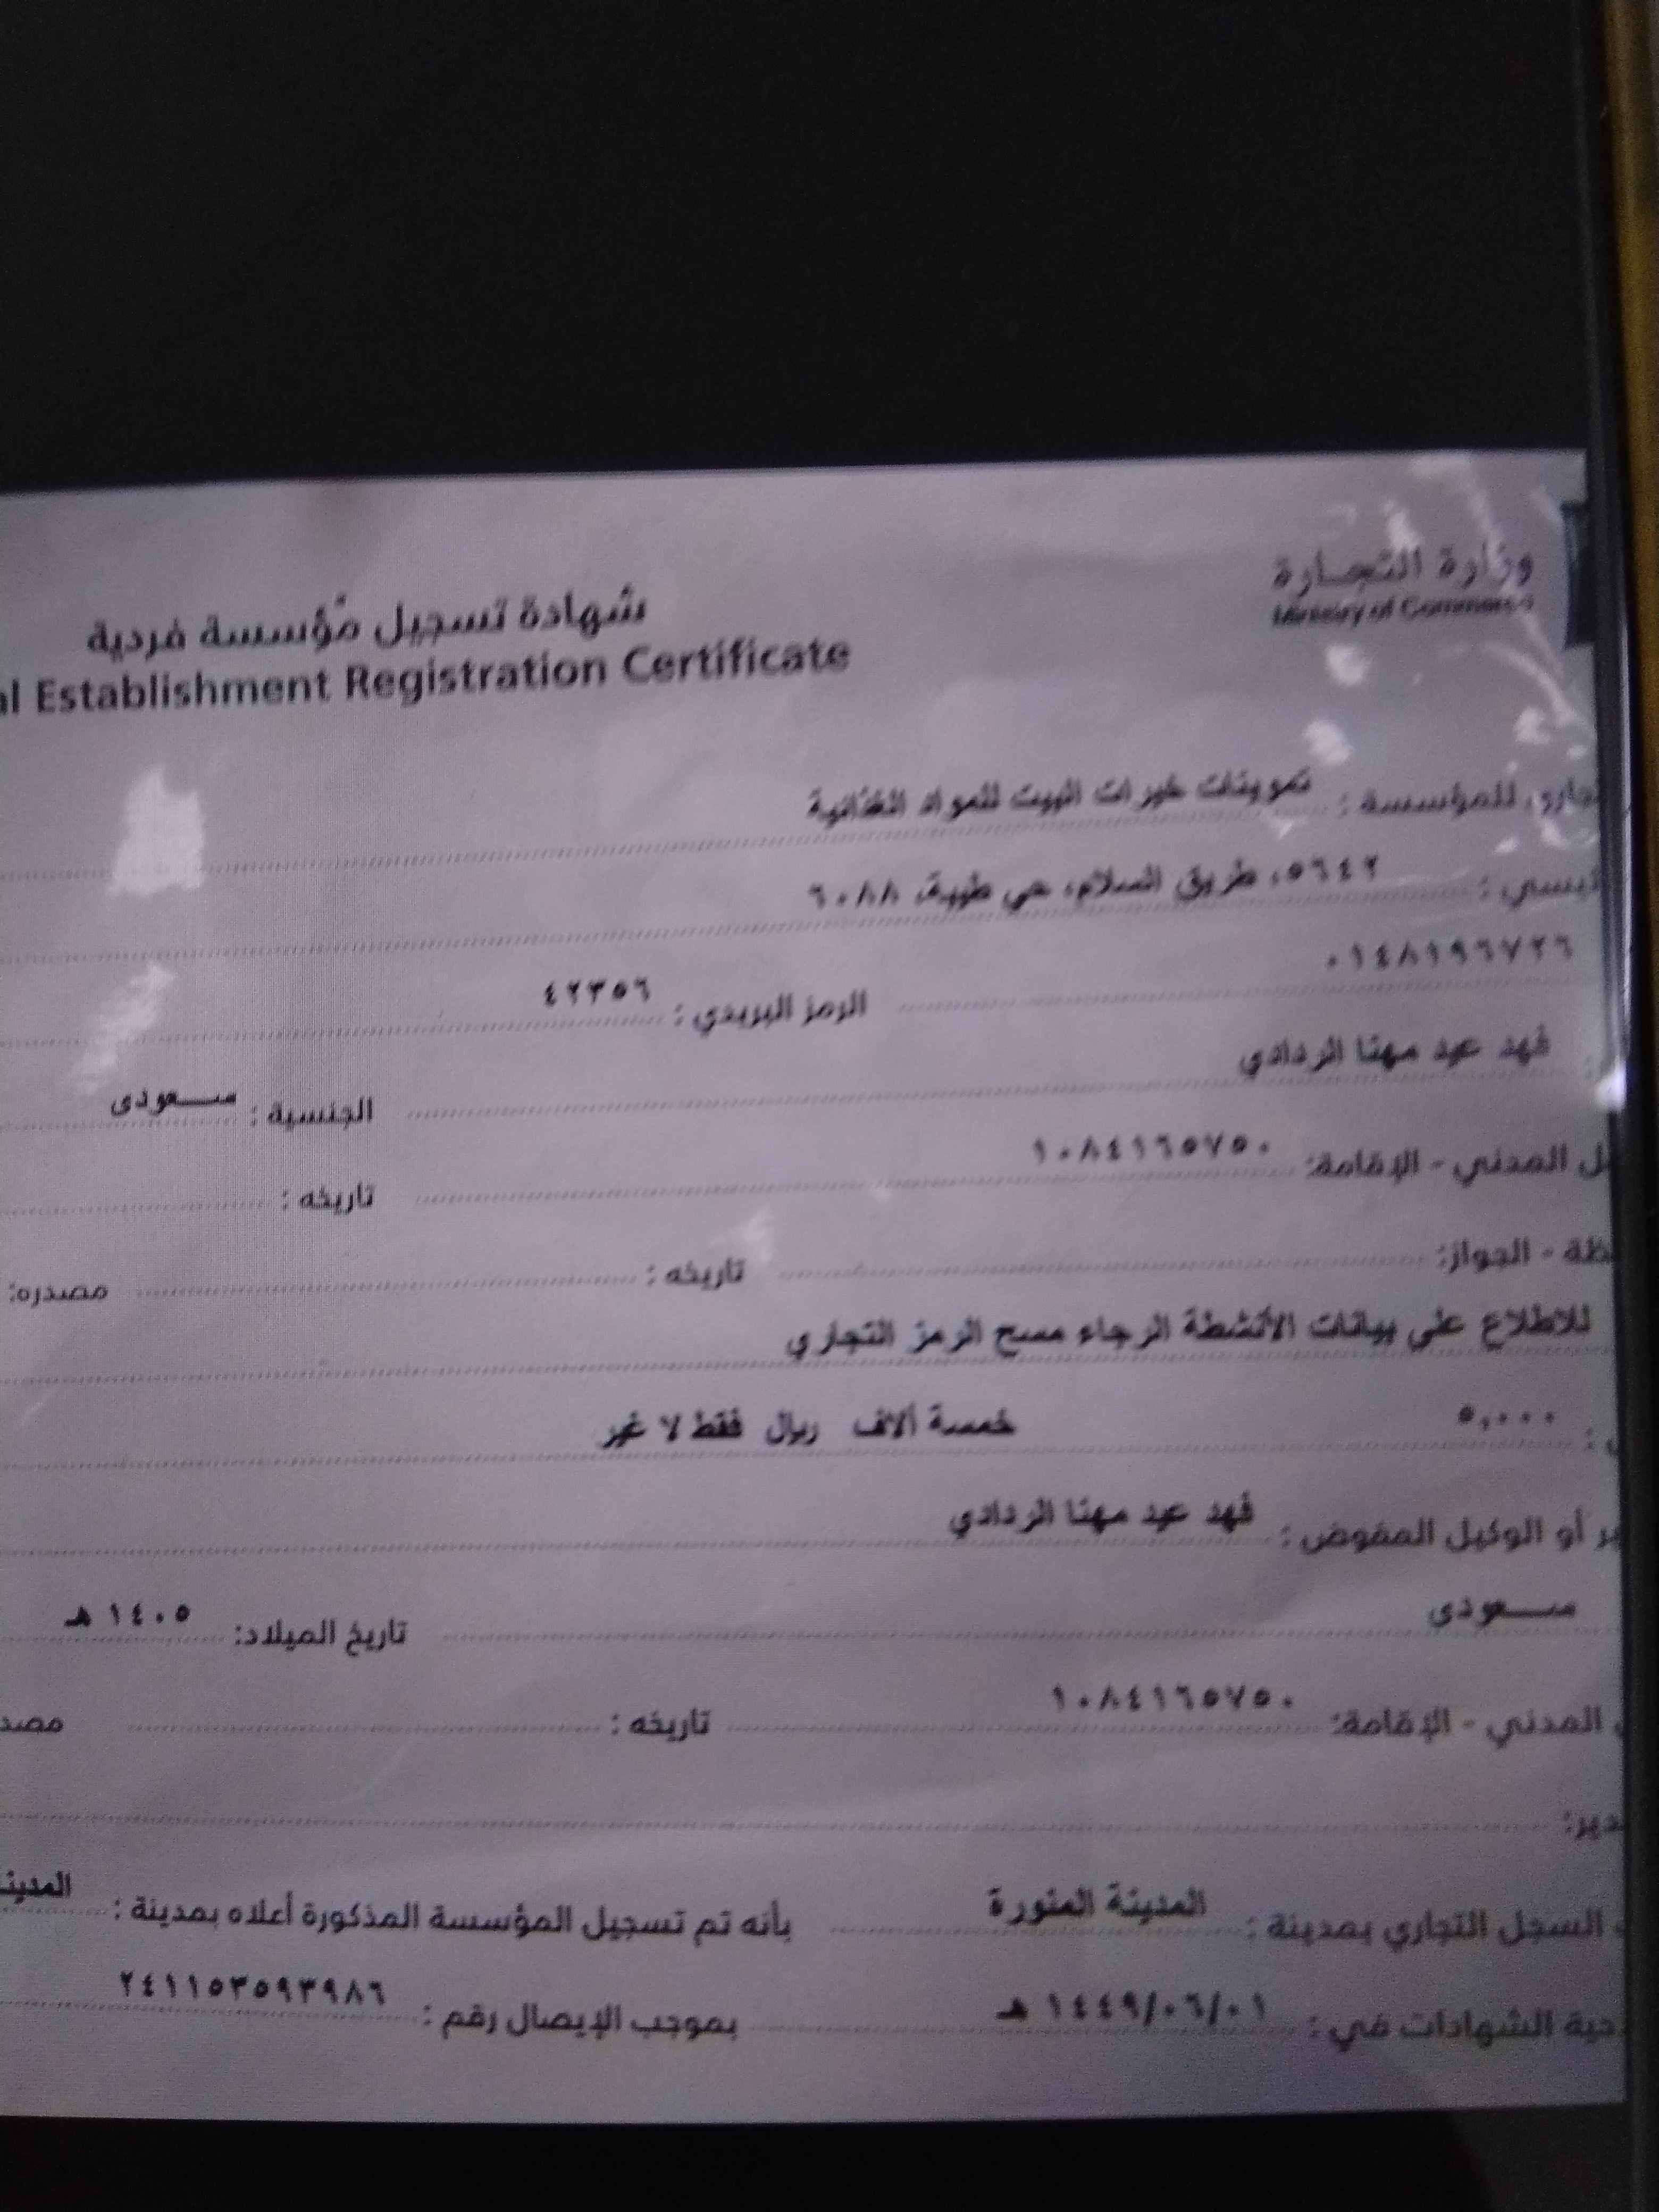 وزارة التجارة
Ministry of Commerce
شهادة تسجيل مؤسسة فردية
Establishment Registration Certificate
للمؤسسة : تموينات خيرات البيت للمواد الغذائية
٥٦٤٢، طريق السلام، حي طيبة، ٦٠٨٨
٠١٤٨١٩٦٧٢٦ الرمز البريدي : ٤٢٣٥٦
فهد عيد مهنا الردادي الجنسية : سعودى
المدني - الإقامة: ١٠٨٤١٦٥٧٥٠ تاريخه :
الجواز: تاريخه : مصدره:
للاطلاع على بيانات الأنشطة الرجاء مسح الرمز التجاري
٥,٠٠٠ خمسة ألاف ريال فقط لا غير
أو الوكيل المفوض : فهد عيد مهنا الردادي
سعودى تاريخ الميلاد: ١٤٠٥ هـ
المدني - الإقامة: ١٠٨٤١٦٥٧٥٠ تاريخه :
السجل التجاري بمدينة : المدينة المنورة بأنه تم تسجيل المؤسسة المذكورة أعلاه بمدينة :
الشهادات في : ١٤٤٩/٠٦/٠١ هـ بموجب الإيصال رقم : ٢٤١١٥٣٥٩٣٩٨٦